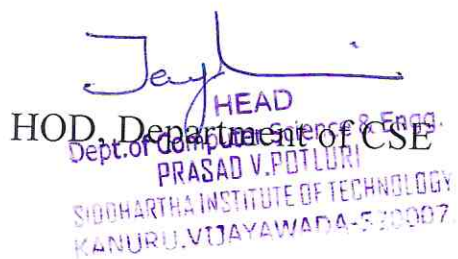 HEAD
HOD, Department of CSE
Dept. of Computer Science & Engg.
PRASAD V. POTLURI
SIDDHARTHA INSTITUTE OF TECHNOLOGY
KANURU, VIJAYAWADA-520007.